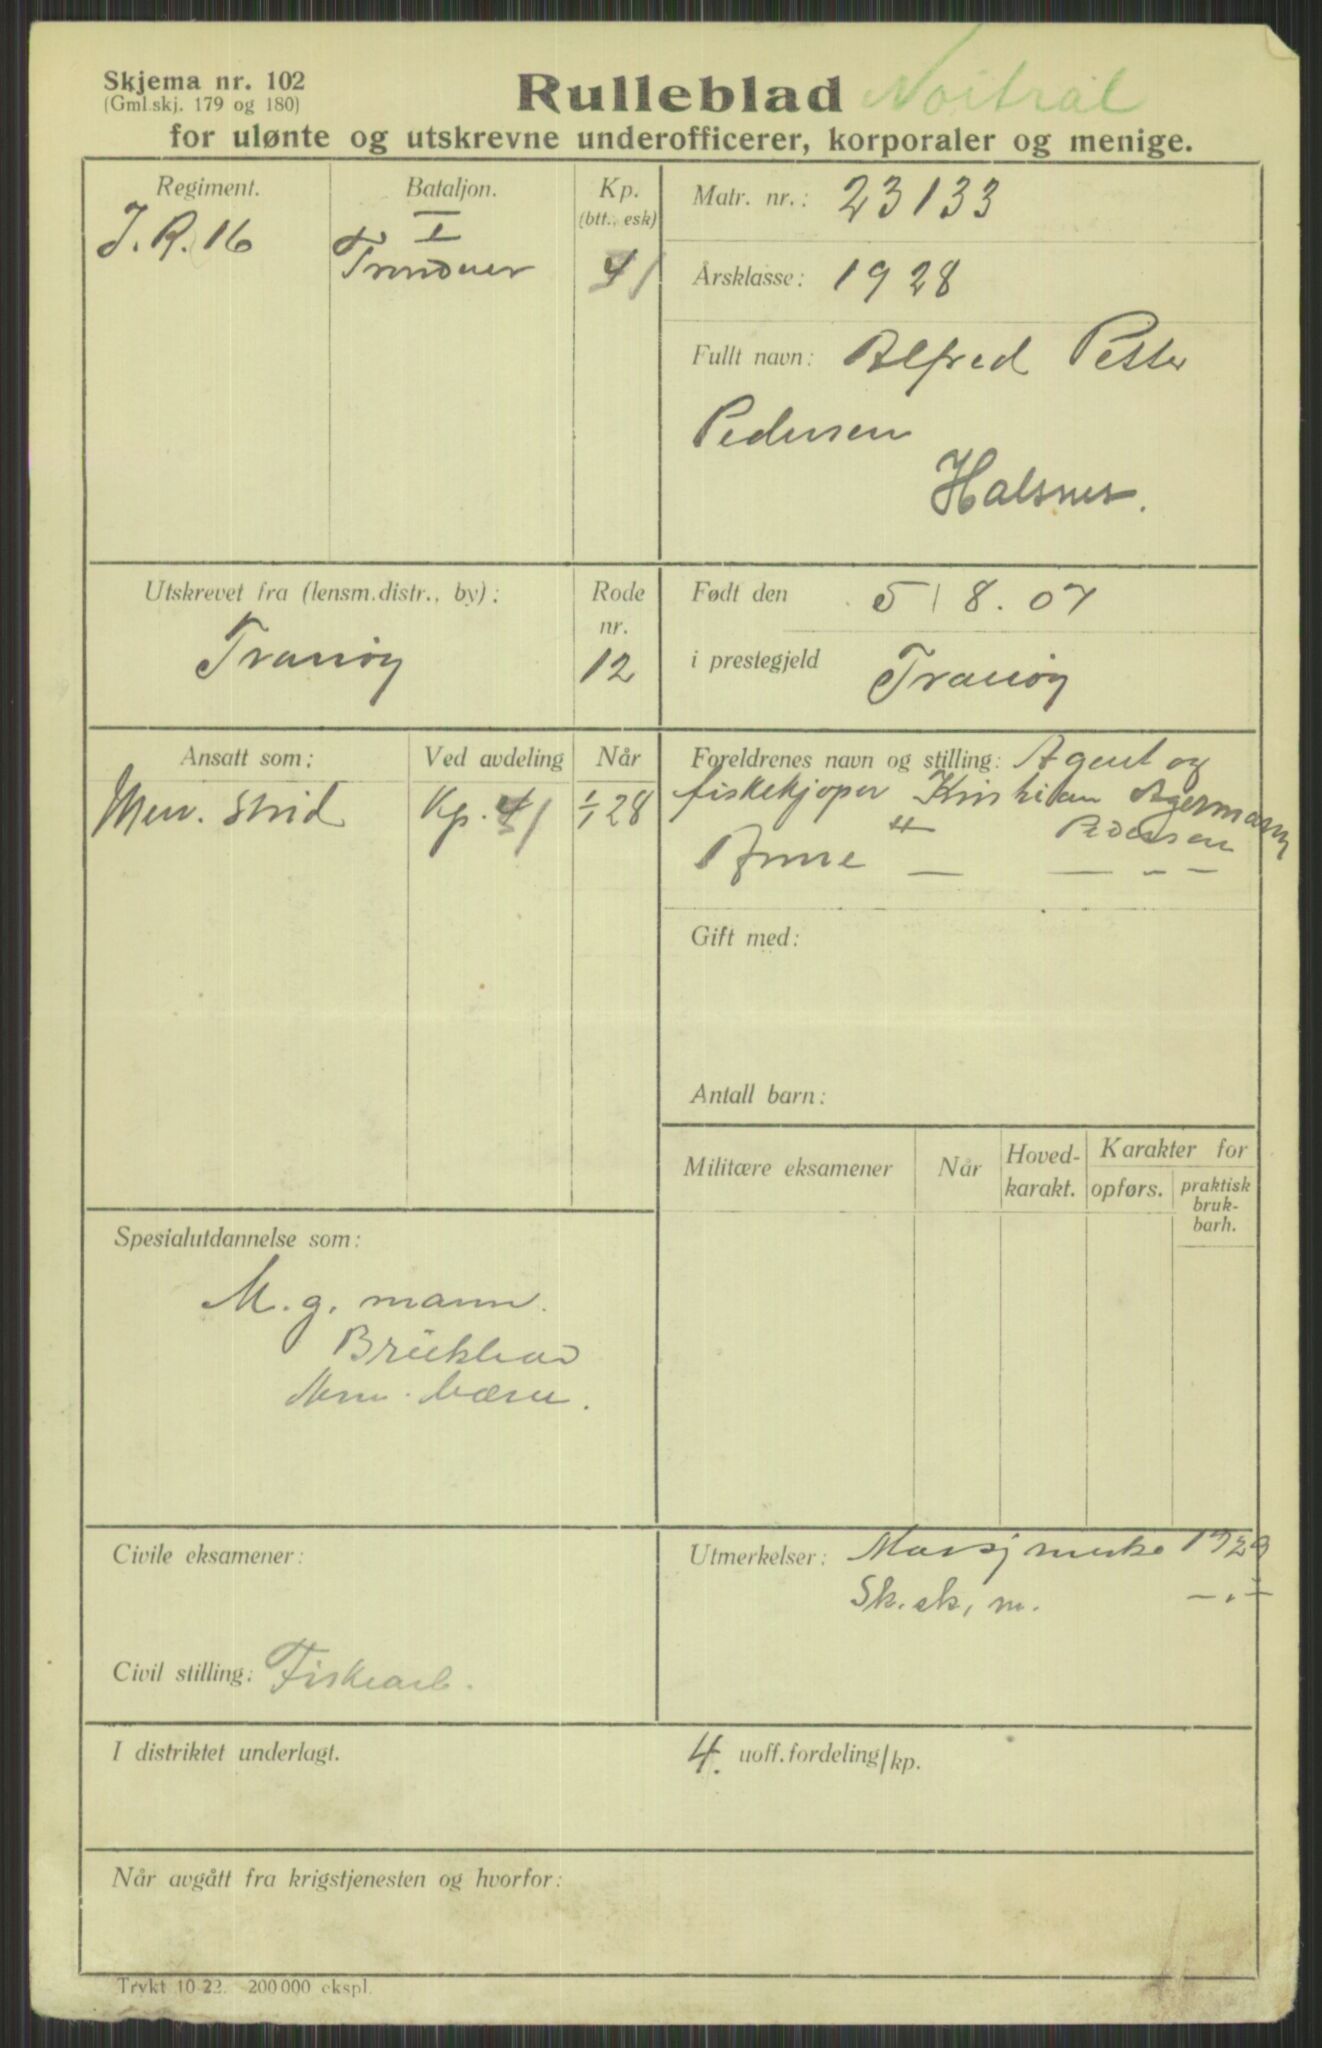 Skjema nr. 102
(Gml.skj. 179 og 180)
Rulleblad Noitral
for ulønte og utskrevne underofficerer, korporaler og menige.
Regiment.
J. R. 16
Bataljon.
I
Kp.
(btt., esk)
Matr. nr.: 23133
Årsklasse: 1928
Fullt navn: Alfred Petter
Pedersen
Halsnes.
Utskrevet fra (lensm.distr., by):
Tranöy
Rode
nr.
12
Født den 5/8. 07
i prestegjeld Tranöy
Ansatt som:
Men. strid
Ved avdeling
Kp.
Når
1/1 28
Foreldrenes navn og stilling: Agent og
fiskekjöper Kristian Agermann
Pedersen
Anne — — - -
Gift med:
Antall barn:
Militære eksamener
Når
Hoved-
karakt.
Karakter for
opførs.
praktisk
bruk-
barh.
Spesialutdannelse som:
M. g. mann.
Civile eksamener:
Civil stilling: Fiskearb.
Utmerkelser: Marsjmerke 1929
Sk. sk. m. — . —
I distriktet underlagt.
4. uoff.fordeling/kp.
Når avgått fra krigstjenesten og hvorfor:
Trykt 10-22. 200000 ekspl.